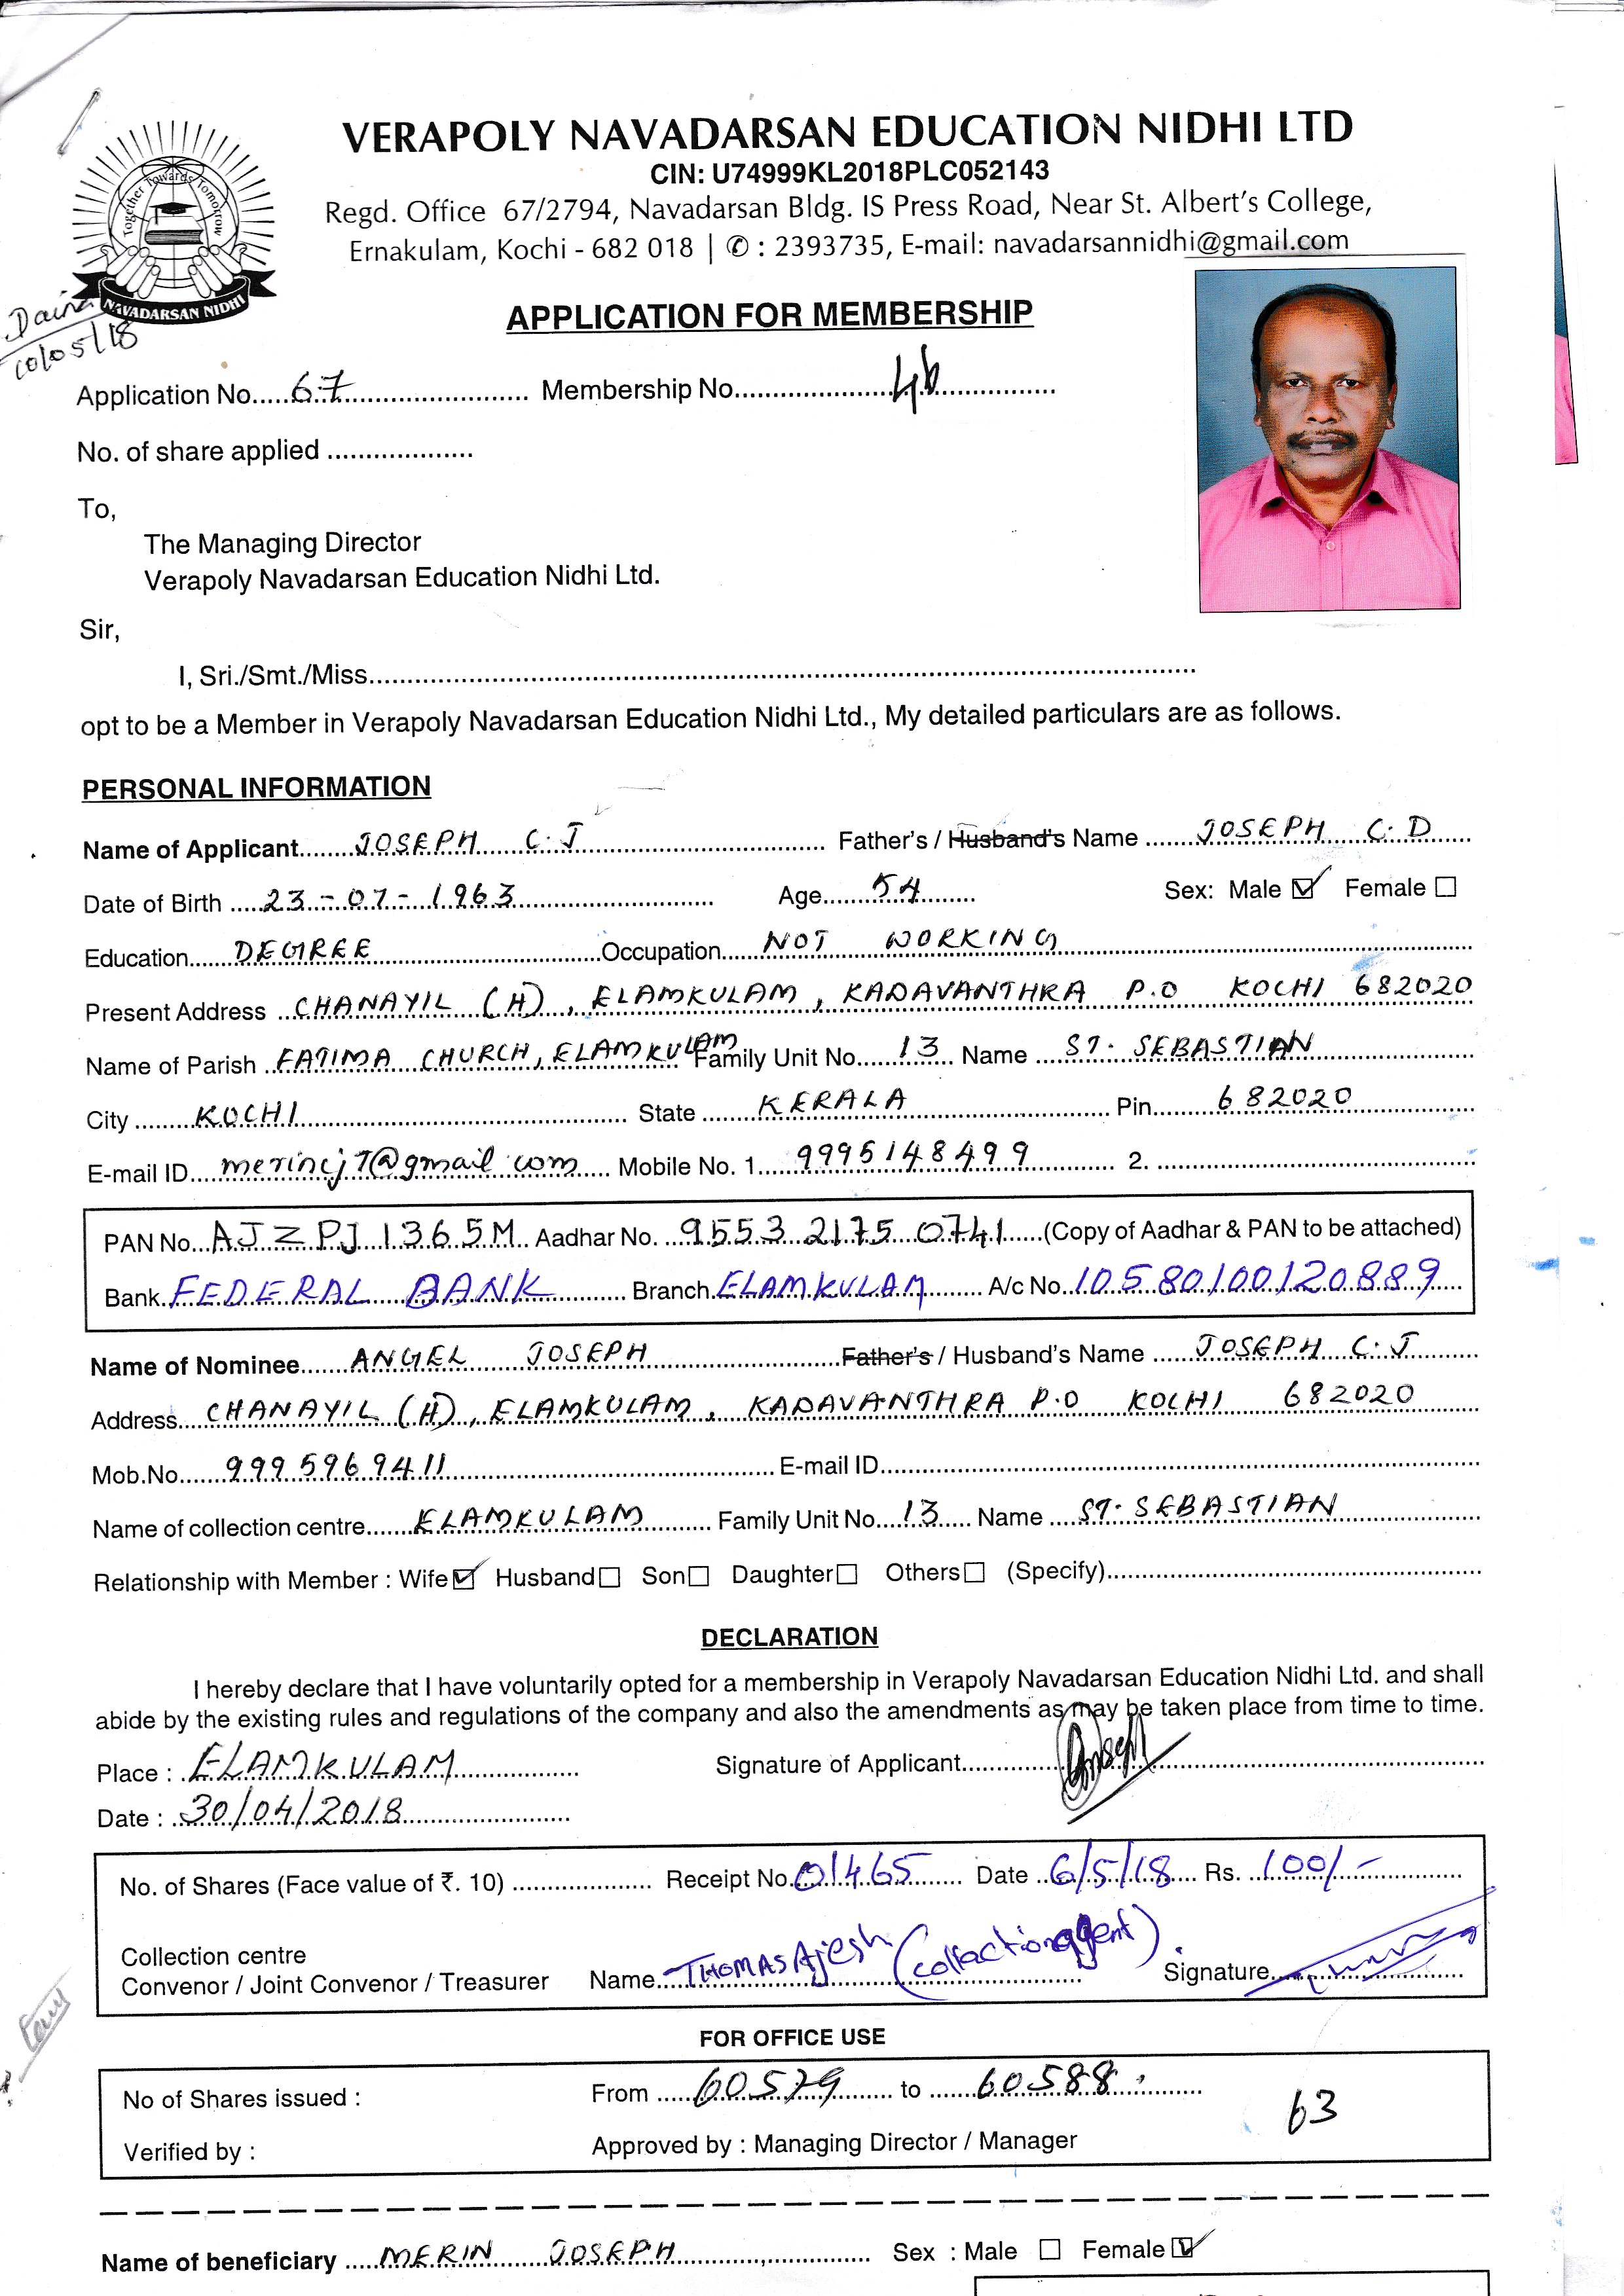 VERAPOLY NAVADARSAN EDUCATION NIDHI LTD
CIN: U74999KL2018PLC052143
Regd. Office 67/2794, Navadarsan Bldg. IS Press Road, Near St. Albert's College,
Ernakulam, Kochi - 682 018 | ✆ : 2393735, E-mail: navadarsannidhi@gmail.com
Together Towards Tomorrow
NAVADARSAN NIDHI
APPLICATION FOR MEMBERSHIP
Application No.....67.......... Membership No..........46..........
No. of share applied ...................
To,
The Managing Director
Verapoly Navadarsan Education Nidhi Ltd.
Sir,
I, Sri./Smt./Miss....................
opt to be a Member in Verapoly Navadarsan Education Nidhi Ltd., My detailed particulars are as follows.
PERSONAL INFORMATION
Name of Applicant........JOSEPH C.J.......... Father's / Husband's Name .......JOSEPH C.D....
Date of Birth .....23-07-1963.......... Age.......54....... Sex: Male ☑ Female ☐
Education......DEGREE..........Occupation......NOT WORKING..........
Present Address ..CHANAYIL (H), ELAMKULAM, KADAVANTHRA P.O KOCHI 682020
Name of Parish ..FATIMA CHURCH, ELAMKULAM Family Unit No.....13.. Name ....ST. SEBASTIAN..........
City ........KOCHI.......... State .......KERALA.......... Pin........682020..........
E-mail ID....merincj7@gmail.com.... Mobile No. 1.....9995148499.......... 2. ....................
PAN No...AJZPJ1365M.. Aadhar No. ..9553 2175 0741.....(Copy of Aadhar & PAN to be attached)
Bank.FEDERAL BANK.......... Branch.ELAMKULAM........ A/c No..10580100120889...
Name of Nominee.......ANGEL JOSEPH..........Father's / Husband's Name ......JOSEPH C.J..........
Address....CHANAYIL (H), ELAMKULAM, KADAVANTHRA P.O KOCHI 682020..........
Mob.No.......9995969411.......... E-mail ID....................
Name of collection centre.......ELAMKULAM.......... Family Unit No....13..... Name ....ST. SEBASTIAN..........
Relationship with Member : Wife ☑ Husband ☐ Son ☐ Daughter ☐ Others ☐ (Specify)....................
DECLARATION
I hereby declare that I have voluntarily opted for a membership in Verapoly Navadarsan Education Nidhi Ltd. and shall
abide by the existing rules and regulations of the company and also the amendments as may be taken place from time to time.
Place : ..ELAMKULAM.......... Signature of Applicant....................
Date : ..30/04/2018..........
No. of Shares (Face value of ₹. 10) .................... Receipt No.01465........ Date ..6/5/18.... Rs. ..100/-..........
Collection centre
Convenor / Joint Convenor / Treasurer Name...THOMAS Ajesh (collection agent) Signature....................
FOR OFFICE USE
No of Shares issued : From .....60579........ to .......60588..........
63
Verified by : Approved by : Managing Director / Manager
Name of beneficiary .....MERIN JOSEPH.......... Sex : Male ☐ Female ☑